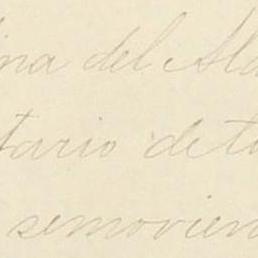 ina del Ala
tario de to
semovien